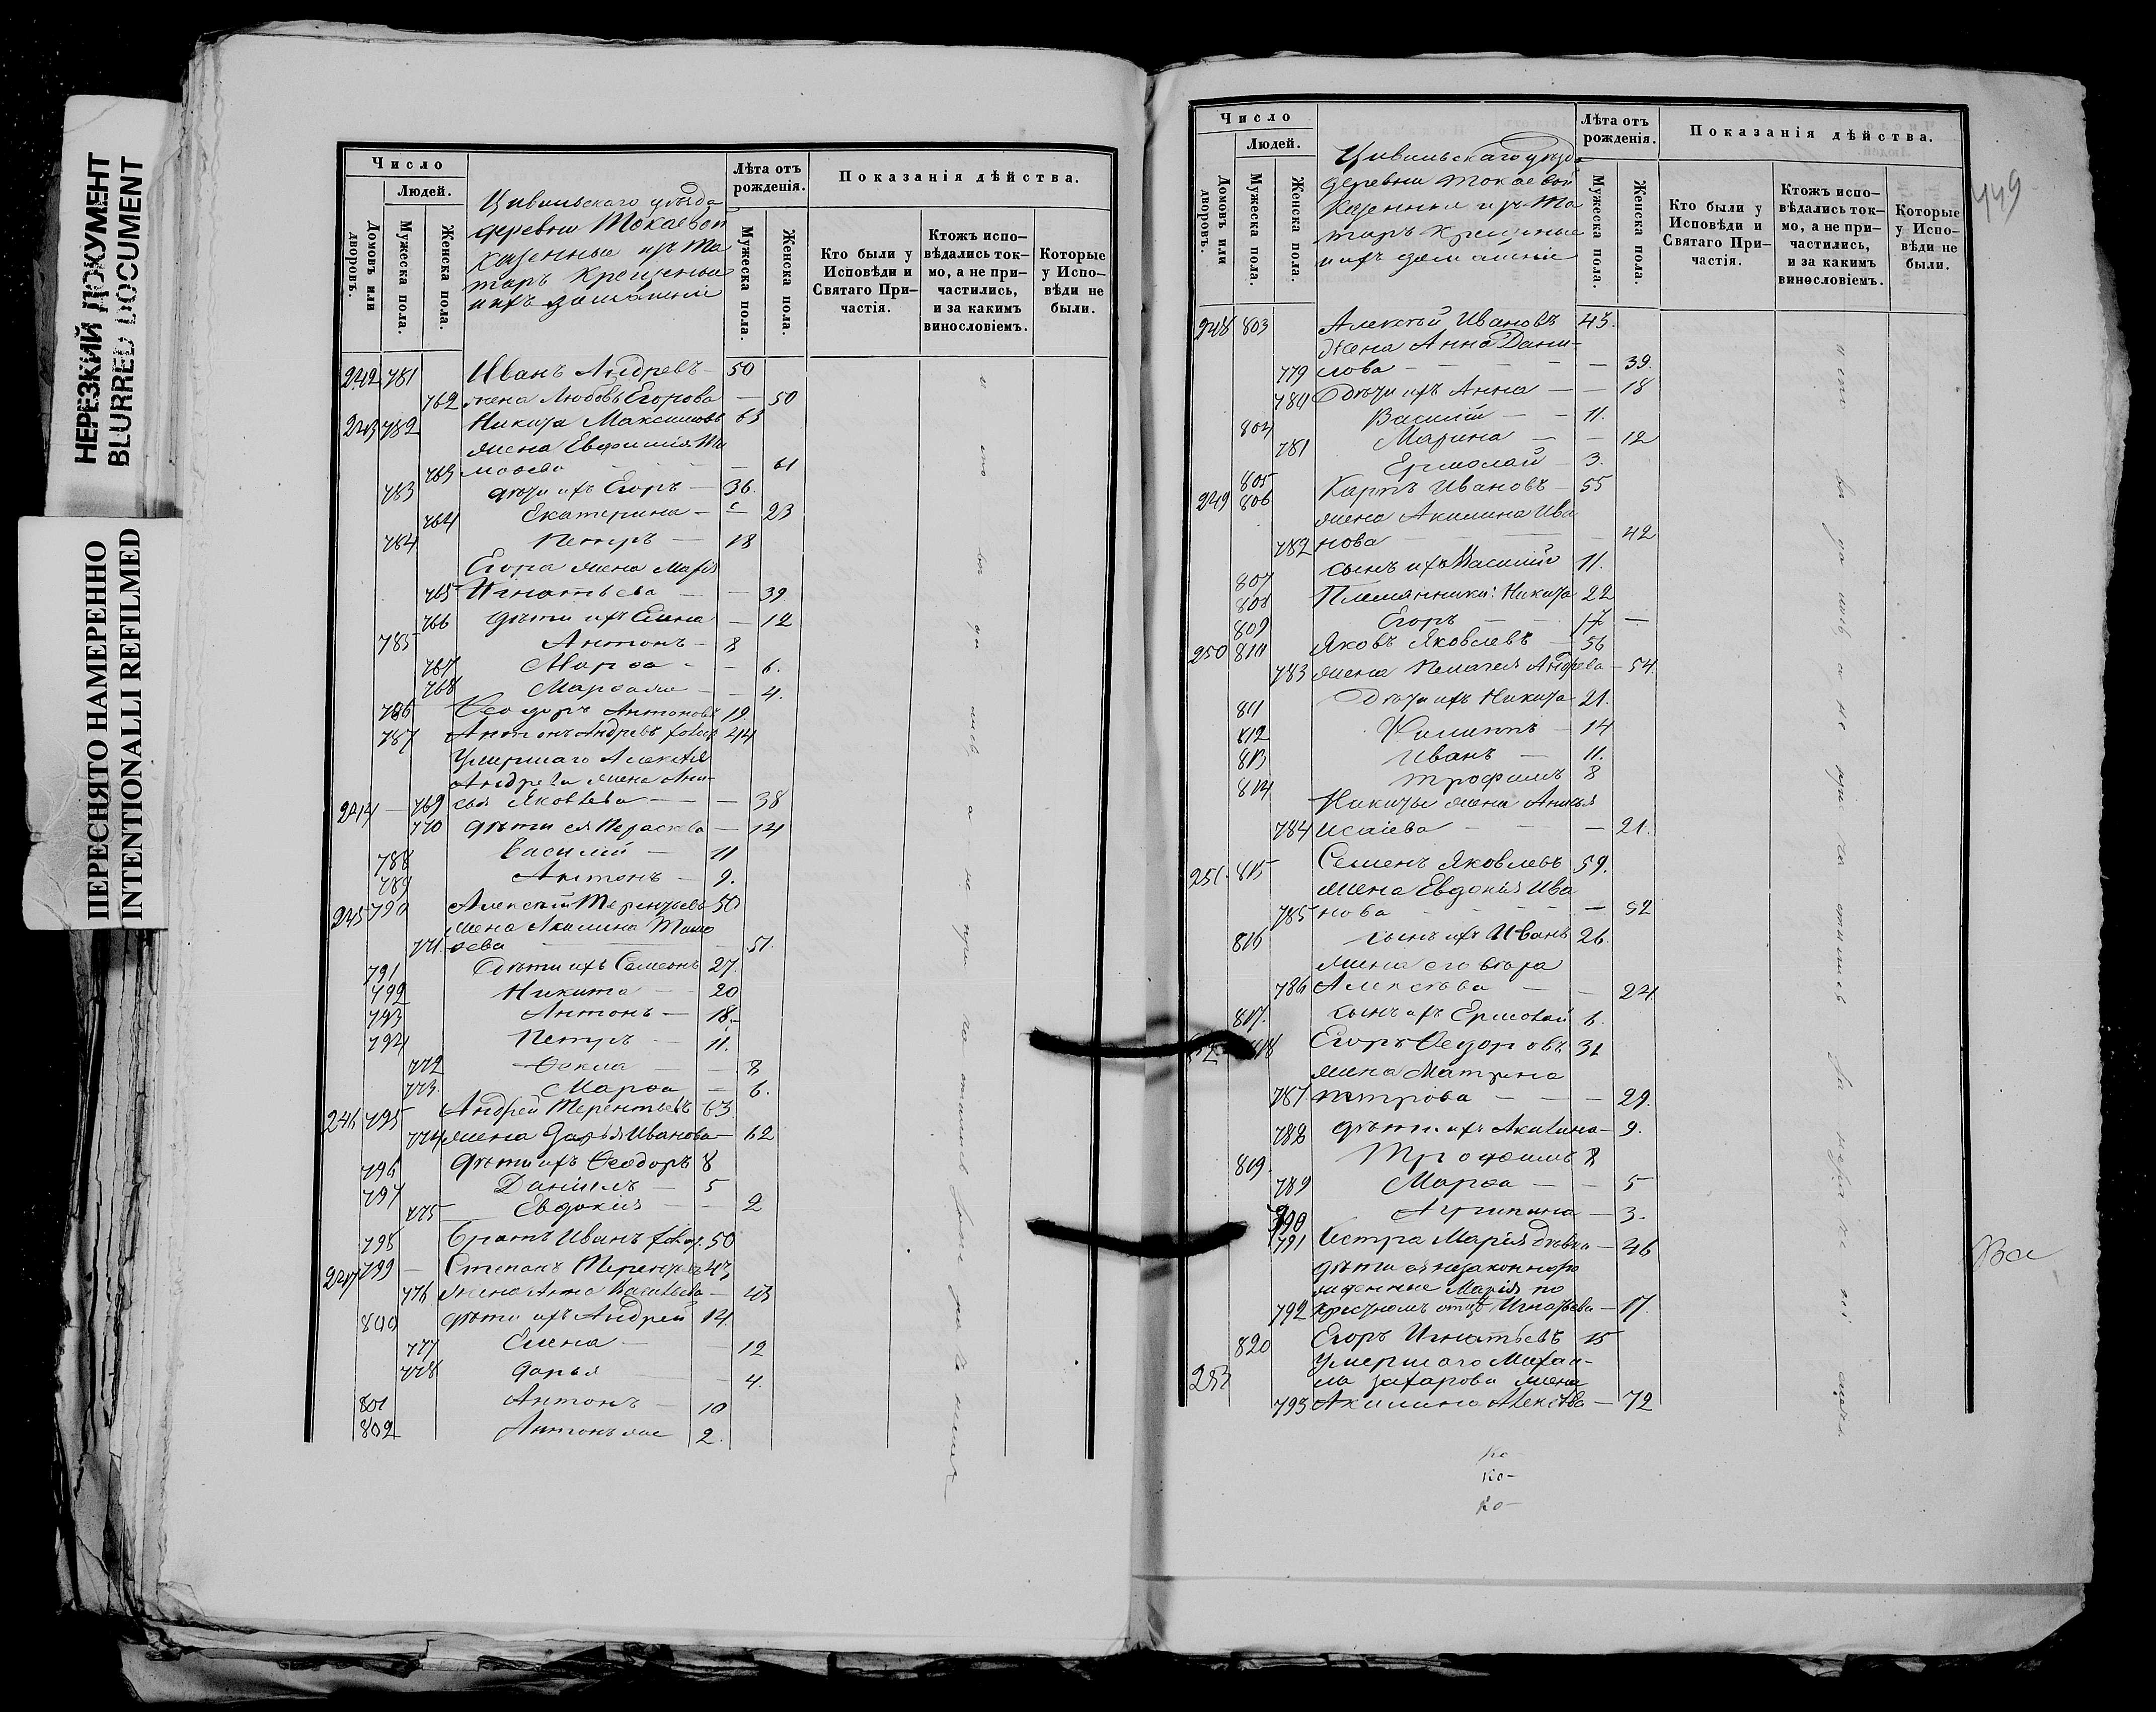 НЕРЕЗКИЙ ДОКУМЕНТ
BLURRED DOCUMENT
ПЕРЕСНЯТО НАМЕРЕННО
INTENTIONALLI REFILMED
Число
Людей.
Домовъ или дворовъ.
Мужеска пола.
Женска пола.
Цивильскаго уѣзда
деревни Токаевой
Казенные изъ Та
таръ Крещеные
и ихъ домашніе
Лѣта отъ рожденія.
Мужеска пола.
Женска пола.
Показанія дѣйства.
Кто были у Исповѣди и Святаго При-частія.
Ктожъ испо-вѣдались ток-мо, а не при-частились, и за какимъ винословіемъ.
Которые у Испо-вѣди не были.
242 781 Иванъ Андревъ 50
762 жена Любовь Егорова — 50
243 782 Никита Максимовъ 63
жена Евфимія Ти
763 моѳева — 61
783 дѣти ихъ Егоръ — 36.
764 Екатерина — 23
784 Петръ — 18
Егора жена Марія
765 Игнатьева — 39
766 дѣти ихъ Елена — 12
785 Антонъ — 8
767 Марѳа — 6.
768 Марѳа же — 4.
786 Ѳеодоръ Антоновъ 19.
787 Антонъ Андревъ холост 44
Умершаго Алексѣя
Андрева жена Ани-
244 — 769 сья Яковлева — 38
770 дѣти ея Параскева — 14
788 Василій — 11
789 Антонъ — 9.
245 790 Алексѣй Терентьевъ 50
жена Акилина Тимо
771. ѳева — 51.
791 Дѣти ихъ Симеонъ 27.
792 Никита — 20
793 Антонъ — 18.
794 Петръ — 11.
772 Ѳекла — 8
773. Марѳа — 6.
246 795 Андрей Терентьевъ 63
774 жена Дарья Иванова — 62
796 дѣти ихъ Ѳеодоръ 8
797 Даніилъ — 5
775 Евдокія — 2
798 братъ Иванъ холос. 50
247 799 — Степанъ Терентьевъ 43
776 жена Анна Васильева — 43
800 дѣти ихъ Андрей 14.
777 Елена — 12
778 Дарья — 4.
801 Антонъ — 10
802 Антонъ же 2.
Число
Людей.
Домовъ или дворовъ.
Мужеска пола.
Женска пола.
Цивильскаго уѣзда
деревни Токаевой
Казенные изъ Та
таръ Крещеные
и ихъ домашніе
Лѣта отъ рожденія.
Мужеска пола.
Женска пола.
Показанія дѣйства.
Кто были у Исповѣди и Святаго При-частія.
Ктожъ испо-вѣдались ток-мо, а не при-частились, и за какимъ винословіемъ.
Которые у Испо-вѣди не были.
449
248 803 Алексѣй Ивановъ 43.
Жена Анна Дани-
779 лова — 39.
780 Дѣти ихъ Анна — 18
804 Василій — 11.
781 Марина — 12
805 Ермолай 3.
249 806 Карпъ Ивановъ — 55
жена Акилина Ива
782 нова — 42
807 сынъ ихъ Василій 11.
808 Племянники: Никита 22
809 Егоръ — 17 —
250 810 Яковъ Яковлевъ — 56
783 жена Пелагея Андрева — 54.
811 Дѣти ихъ Никита 21.
812 Филиппъ — 14
813 Иванъ — 11.
814 Трофимъ 8
Никиты жена Анисья
784 Исаіева — 21.
251. 815 Семенъ Яковлевъ 59.
жена Евдокія Ива
785 нова — 52
816 сынъ ихъ Иванъ 26.
жена его
786 Алексѣева — 24
817. сынъ ихъ Ермолай 6.
252 818 Егоръ Ѳедоровъ 31
жена Матрена
787. Петрова — 29.
788 дѣти ихъ Акилина — 9.
819. Трофимъ 8
789 Марѳа — 5
790 Агрипина — 3.
791 Сестра Марія дѣвка — 46
дѣти ея незаконноро
жденные Марія по
792 крестномъ отцѣ Игнатьева — 17.
820 Егоръ Игнатьевъ 15
Умершаго Михаи-
253 ла Захарова жена
793 Акилина Алексѣева — 72
Ко
Ко-
Ко-